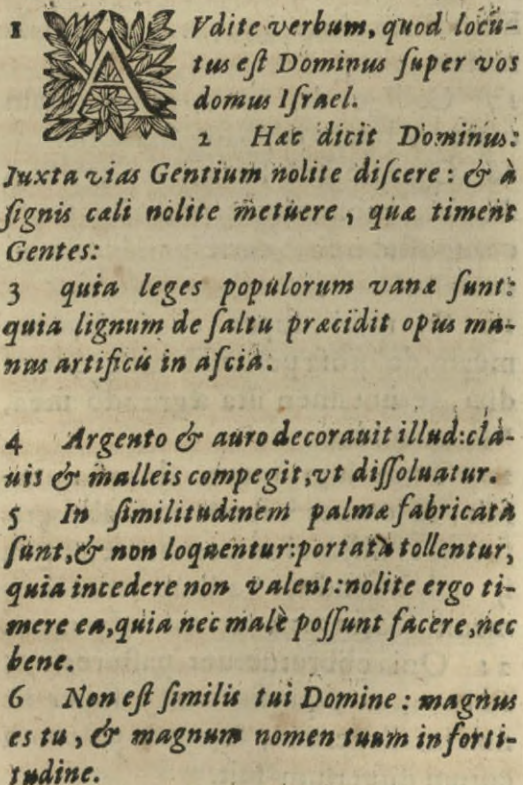 1 AVdite verbum, quod locu-
tus eſt Dominus ſuper vos
domus Iſrael.
2 Hæc dicit Dominus:
Iuxta vias Gentium nolite diſcere: & à
ſignis cæli nolite metuere, quæ timent
Gentes:
3 quia leges populorum vanæ ſunt:
quia lignum de ſaltu præcidit opus ma-
nus artificis in aſcia.
4 Argento & auro decorauit illud:cla-
uis & malleis compegit,vt diſſoluatur.
5 In ſimilitudinem palmæ fabricata
ſunt,& non loquentur:portata tollentur,
quia incedere non valent:nolite ergo ti-
mere ea,quia nec malè poſſunt facere,nec
bene.
6 Non eſt ſimilis tui Domine: magnus
es tu, & magnum nomen tuum in forti-
tudine.